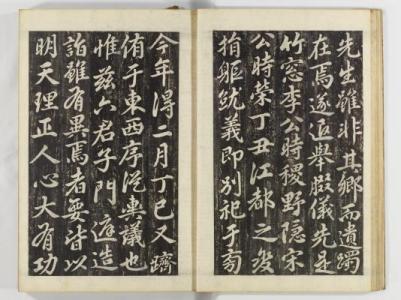 先生雖非其鄉而遺躅
在焉遂追舉腏儀先是
竹窓李公時稷野隱宋
公時榮丁丑江都之變
捐軀就義即別祀于
今年得二月丁巳又躋
侑于東西序從輿議也
惟玆六君子門造
詣雖有異焉者要皆以
明天理正人心大有功